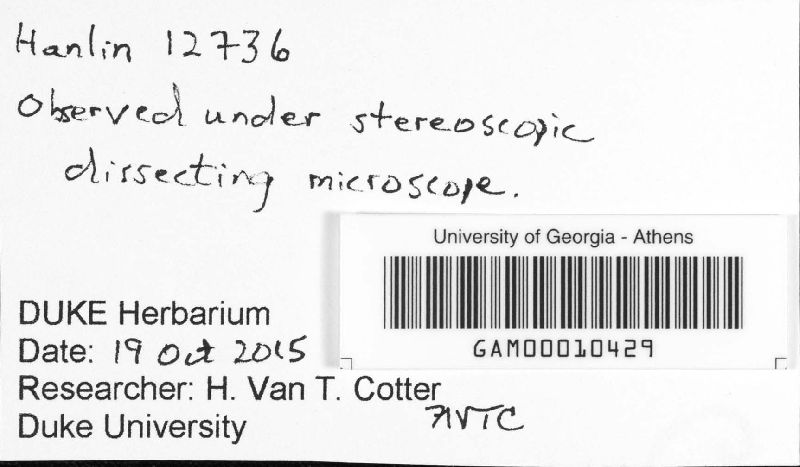 Hanlin 12736
Observed under stereoscopic
dissecting microscope.
University of Georgia - Athens
GAM00010429
DUKE Herbarium
Date: 19 Oct 2015
Researcher: H. Van T. Cotter
HVTC
Duke University